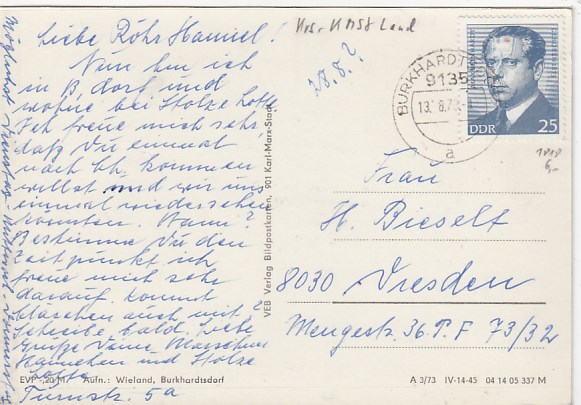 Liebe Röhr Hannel!
Nun bin ich
in B. dorf und
wohne bei Stolze Lotte
Ich freue mich sehr,
daß Du einmal
nach Ch. kommen
willst und wir uns
einmal wiedersehen
könnten. Wann?
Bestimme Du den
Zeitpunkt ich
freue mich sehr
darauf. Kommt
Kläschen auch mit?
Schreibe bald. Liebe
Grüße Deine
Hannchen und Stolze
Lotte
Turnstr. 5a
EVP -,20 M Aufn.: Wieland, Burkhardtsdorf
VEB Verlag Bildpostkarten, 901 Karl-Marx-Stadt
Krs. Land
28.8.?
BURKHARDT
9135
13. 8.7
a
DDR 25
1818
6,-
Frau
H. Bieselt
8030 Dresden
Mengestr. 36 P.F 73/32
A 3/73 IV-14-45 04 14 05 337 M